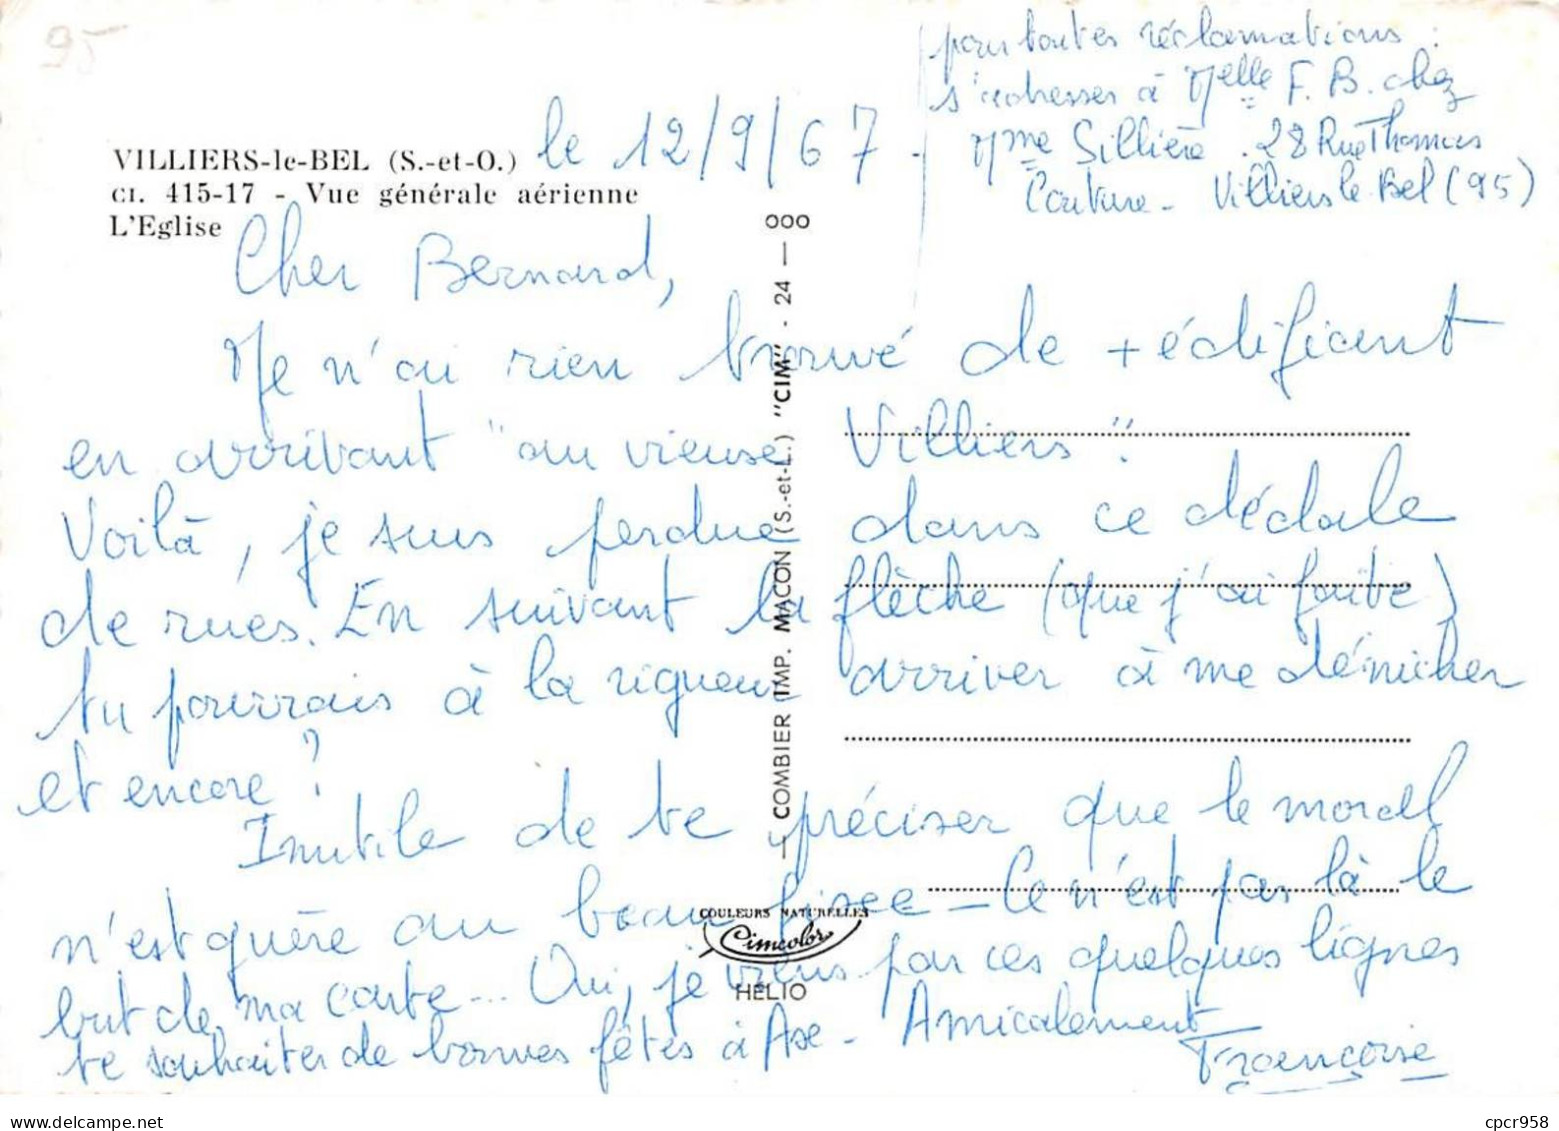 95
pour toutes réclamations :
s'adresser à Melle F. B. chez
Mme Sillière . 28 Rue Thomas
Couture - Villiers le Bel (95)
le 12/9/67 .
VILLIERS-le-BEL (S.-et-O.)
CI. 415-17 - Vue générale aérienne
L'Eglise
Cher Bernard,
Je n'ai rien trouvé de + édifiant
en arrivant "au vieux Villiers".
Voilà, je suis perdue dans ce dédale
de rues. En suivant la flèche (que j'ai faite)
tu pourrais à la rigueur arriver à me dénicher
et encore ?
Inutile de te préciser que le moral
n'est guère au beau fixe - Ce n'est pas là le
but de ma carte... Oui, je viens par ces quelques lignes
te souhaiter de bonnes fêtes à Ax - Amicalement
Françoise
COMBIER (IMP. MACON (S.-et-L.) "CIM" - 24 — 000
COULEURS NATURELLES
Cimcolor
HELIO
cpcr958